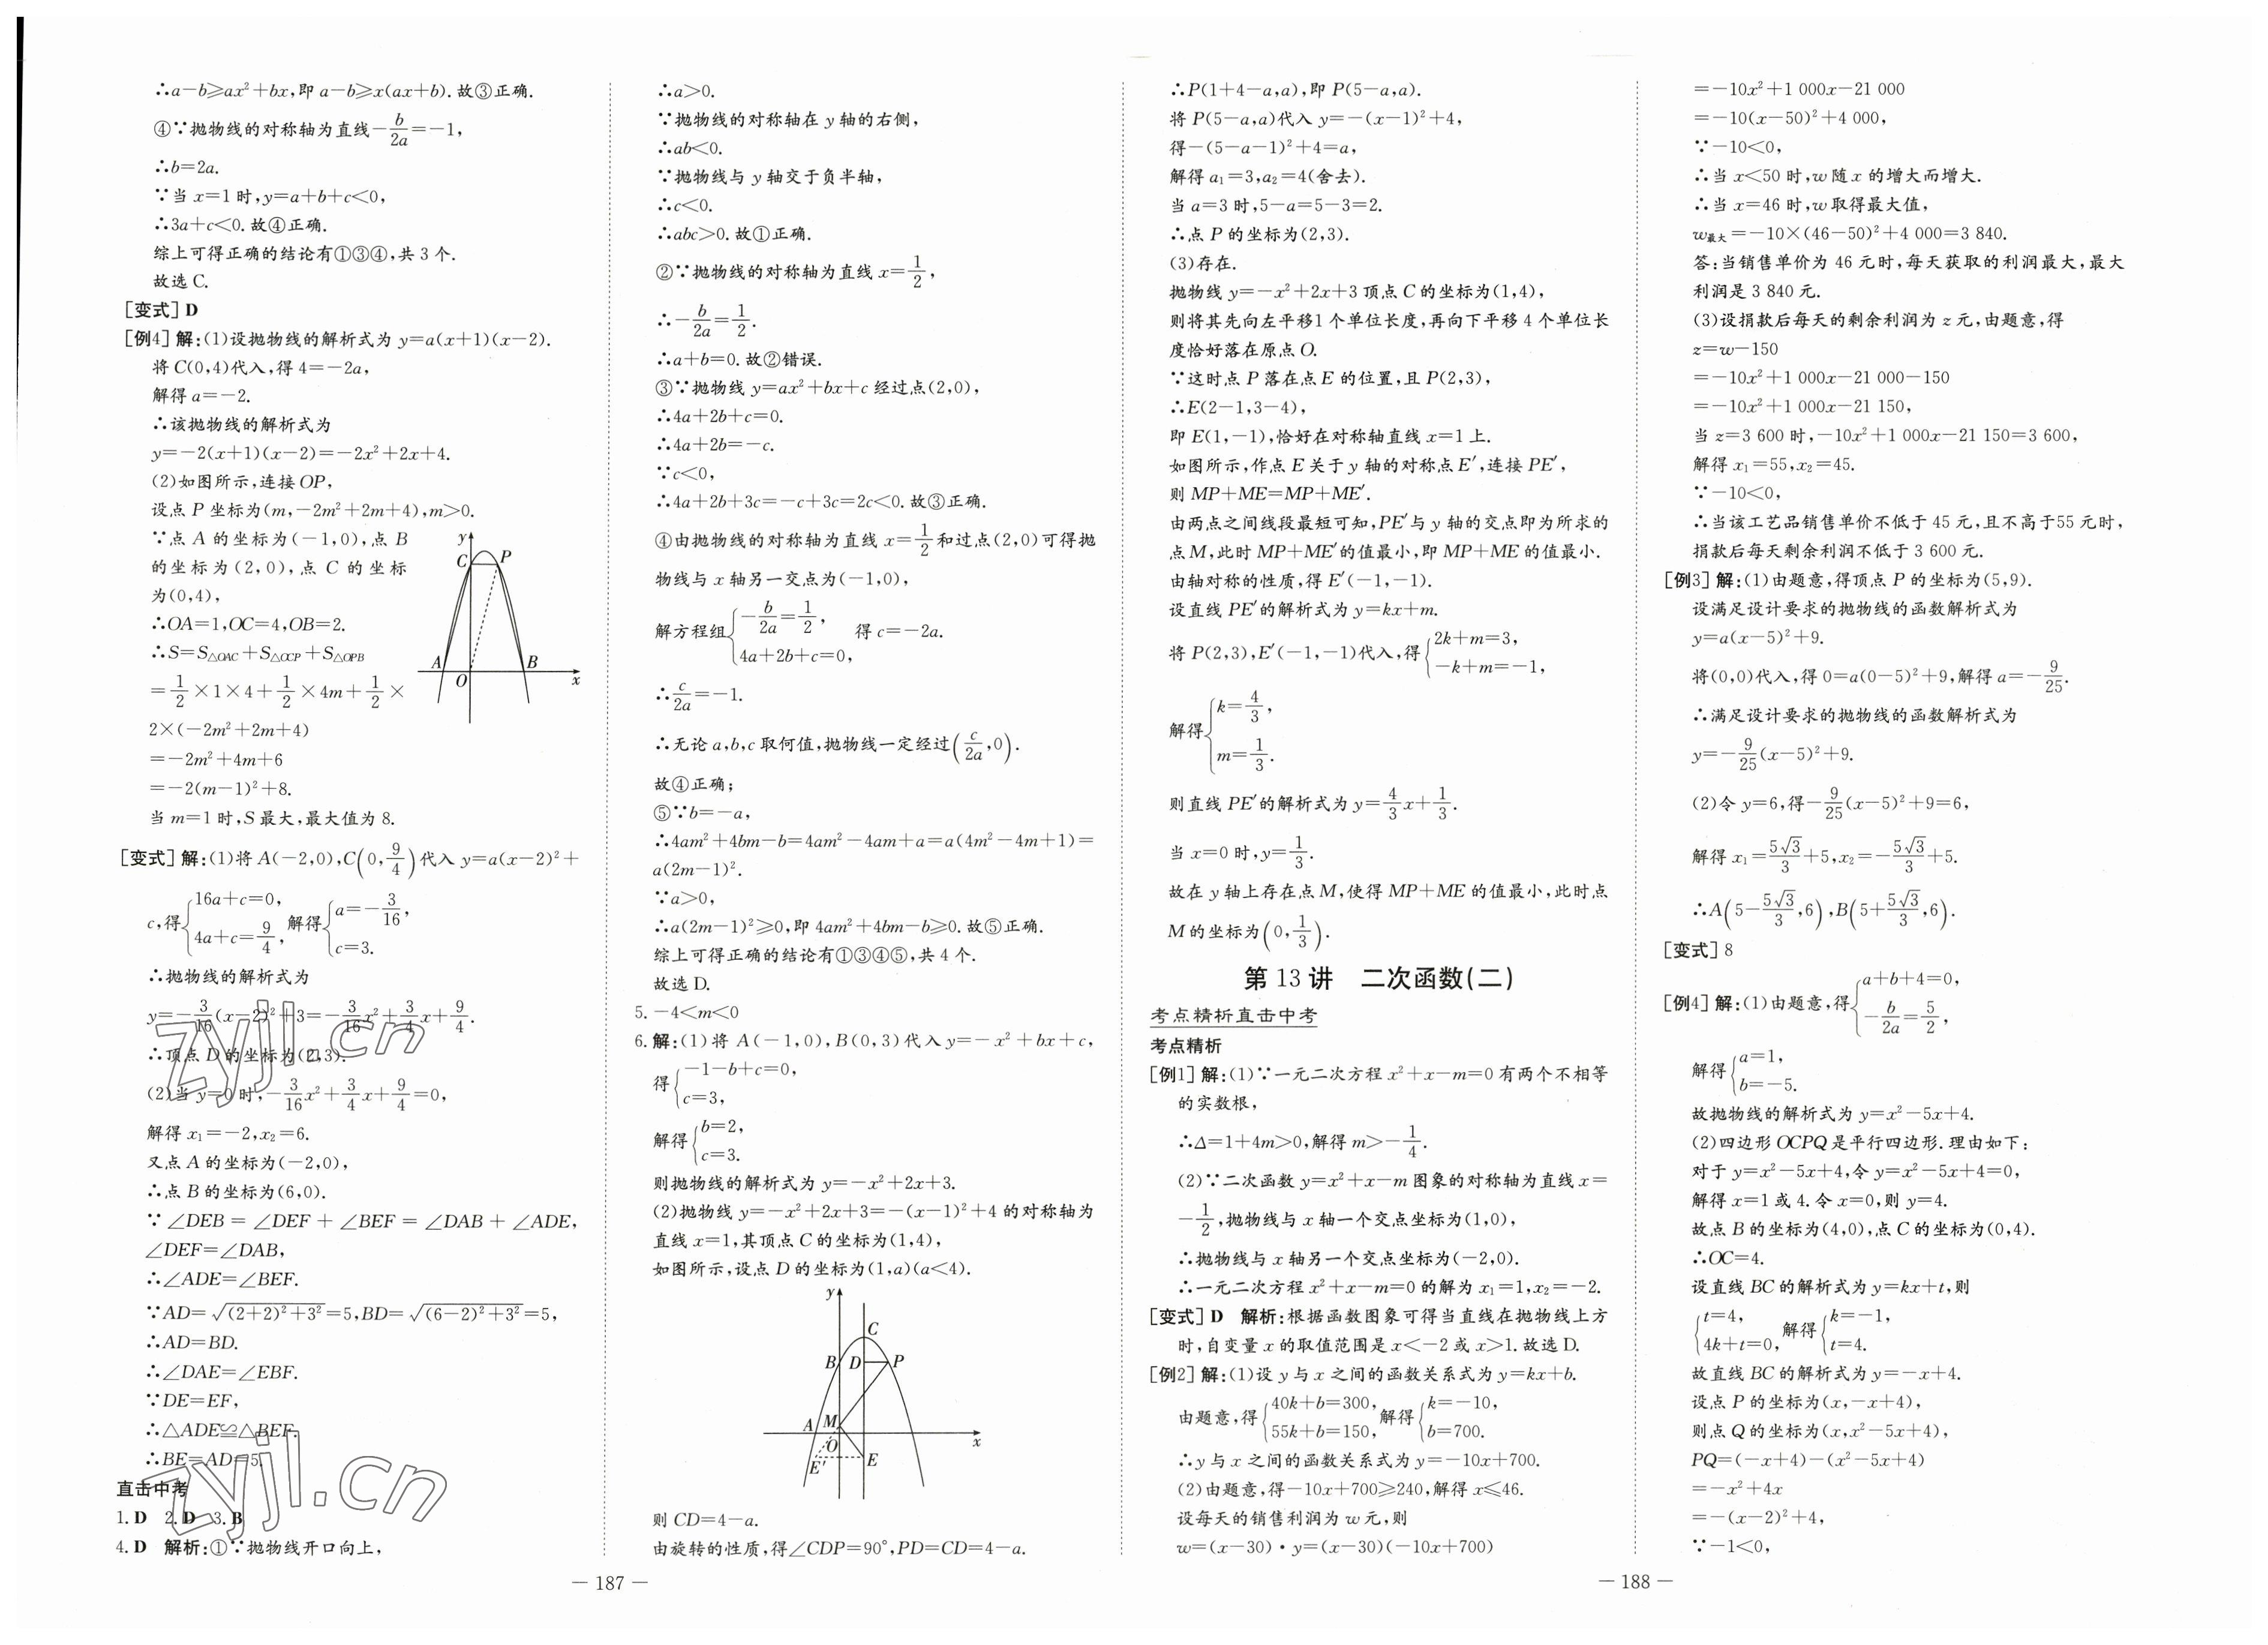 ∴a－b≥ax²＋bx,即 a－b≥x(ax＋b).故③正确.
④∵抛物线的对称轴为直线－b/2a＝－1,
∴b＝2a.
∵当 x＝1 时,y＝a＋b＋c<0,
∴3a＋c<0.故④正确.
综上可得正确的结论有①③④,共 3 个.
故选 C.
[变式] D
[例4] 解:(1)设抛物线的解析式为 y＝a(x＋1)(x－2).
将 C(0,4)代入,得 4＝－2a,
解得 a＝－2.
∴该抛物线的解析式为
y＝－2(x＋1)(x－2)＝－2x²＋2x＋4.
(2)如图所示,连接 OP,
设点 P 坐标为(m,－2m²＋2m＋4),m>0.
∵点 A 的坐标为(－1,0),点 B
的坐标为(2,0),点 C 的坐标
为(0,4),
∴OA＝1,OC＝4,OB＝2.
∴S＝S△OAC＋S△OCP＋S△OPB
＝1/2×1×4＋1/2×4m＋1/2×
2×(－2m²＋2m＋4)
＝－2m²＋4m＋6
＝－2(m－1)²＋8.
当 m＝1 时,S 最大,最大值为 8.
y
C
P
A
O
B
x
[变式] 解:(1)将 A(－2,0),C(0,9/4)代入 y＝a(x－2)²＋
c,得{16a＋c＝0, 4a＋c＝9/4, 解得{a＝－3/16, c＝3.
∴抛物线的解析式为
y＝－3/16(x－2)²＋3＝－3/16x²＋3/4x＋9/4.
∴顶点 D 的坐标为(2,3).
(2)当 y＝0 时,－3/16x²＋3/4x＋9/4＝0,
解得 x₁＝－2,x₂＝6.
又点 A 的坐标为(－2,0),
∴点 B 的坐标为(6,0).
∵∠DEB＝∠DEF＋∠BEF＝∠DAB＋∠ADE,
∠DEF＝∠DAB,
∴∠ADE＝∠BEF.
∵AD＝√((2＋2)²＋3²)＝5,BD＝√((6－2)²＋3²)＝5,
∴AD＝BD.
∴∠DAE＝∠EBF.
∵DE＝EF,
∴△ADE≌△BEF.
∴BE＝AD＝5.
直击中考
1. D 2. D 3. B
4. D 解析:①∵抛物线开口向上,
∴a>0.
∵抛物线的对称轴在 y 轴的右侧,
∴ab<0.
∵抛物线与 y 轴交于负半轴,
∴c<0.
∴abc>0.故①正确.
②∵抛物线的对称轴为直线 x＝1/2,
∴－b/2a＝1/2.
∴a＋b＝0.故②错误.
③∵抛物线 y＝ax²＋bx＋c 经过点(2,0),
∴4a＋2b＋c＝0.
∴4a＋2b＝－c.
∵c<0,
∴4a＋2b＋3c＝－c＋3c＝2c<0.故③正确.
④由抛物线的对称轴为直线 x＝1/2和过点(2,0)可得抛
物线与 x 轴另一交点为(－1,0),
解方程组{－b/2a＝1/2, 4a＋2b＋c＝0, 得 c＝－2a.
∴c/2a＝－1.
∴无论 a,b,c 取何值,抛物线一定经过(c/2a,0).
故④正确;
⑤∵b＝－a,
∴4am²＋4bm－b＝4am²－4am＋a＝a(4m²－4m＋1)＝
a(2m－1)².
∵a>0,
∴a(2m－1)²≥0,即 4am²＋4bm－b≥0.故⑤正确.
综上可得正确的结论有①③④⑤,共 4 个.
故选 D.
5. －4<m<0
6. 解:(1)将 A(－1,0),B(0,3)代入 y＝－x²＋bx＋c,
得{－1－b＋c＝0, c＝3,
解得{b＝2, c＝3.
则抛物线的解析式为 y＝－x²＋2x＋3.
(2)抛物线 y＝－x²＋2x＋3＝－(x－1)²＋4 的对称轴为
直线 x＝1,其顶点 C 的坐标为(1,4),
如图所示,设点 D 的坐标为(1,a)(a<4).
y
C
B D P
A M
O x
E′ E
则 CD＝4－a.
由旋转的性质,得∠CDP＝90°,PD＝CD＝4－a.
— 187 —
∴P(1＋4－a,a),即 P(5－a,a).
将 P(5－a,a)代入 y＝－(x－1)²＋4,
得－(5－a－1)²＋4＝a,
解得 a₁＝3,a₂＝4(舍去).
当 a＝3 时,5－a＝5－3＝2.
∴点 P 的坐标为(2,3).
(3)存在.
抛物线 y＝－x²＋2x＋3 顶点 C 的坐标为(1,4),
则将其先向左平移1 个单位长度,再向下平移 4 个单位长
度恰好落在原点 O.
∵这时点 P 落在点 E 的位置,且 P(2,3),
∴E(2－1,3－4),
即 E(1,－1),恰好在对称轴直线 x＝1 上.
如图所示,作点 E 关于 y 轴的对称点 E′,连接 PE′,
则 MP＋ME＝MP＋ME′.
由两点之间线段最短可知,PE′与 y 轴的交点即为所求的
点 M,此时 MP＋ME′的值最小,即 MP＋ME 的值最小.
由轴对称的性质,得 E′(－1,－1).
设直线 PE′的解析式为 y＝kx＋m.
将 P(2,3),E′(－1,－1)代入,得{2k＋m＝3, －k＋m＝－1,
解得{k＝4/3, m＝1/3.
则直线 PE′的解析式为 y＝4/3x＋1/3.
当 x＝0 时,y＝1/3.
故在 y 轴上存在点 M,使得 MP＋ME 的值最小,此时点
M 的坐标为(0,1/3).
第 13 讲 二次函数(二)
考点精析直击中考
考点精析
[例1] 解:(1)∵一元二次方程 x²＋x－m＝0 有两个不相等
的实数根,
∴Δ＝1＋4m>0,解得 m>－1/4.
(2)∵二次函数 y＝x²＋x－m 图象的对称轴为直线 x＝
－1/2,抛物线与 x 轴一个交点坐标为(1,0),
∴抛物线与 x 轴另一个交点坐标为(－2,0).
∴一元二次方程 x²＋x－m＝0 的解为 x₁＝1,x₂＝－2.
[变式] D 解析:根据函数图象可得当直线在抛物线上方
时,自变量 x 的取值范围是 x<－2 或 x>1.故选 D.
[例2] 解:(1)设 y 与 x 之间的函数关系式为 y＝kx＋b.
由题意,得{40k＋b＝300, 55k＋b＝150, 解得{k＝－10, b＝700.
∴y 与 x 之间的函数关系式为 y＝－10x＋700.
(2)由题意,得－10x＋700≥240,解得 x≤46.
设每天的销售利润为 w 元,则
w＝(x－30)·y＝(x－30)(－10x＋700)
＝－10x²＋1 000x－21 000
＝－10(x－50)²＋4 000,
∵－10<0,
∴当 x<50 时,w 随 x 的增大而增大.
∴当 x＝46 时,w 取得最大值,
w最大＝－10×(46－50)²＋4 000＝3 840.
答:当销售单价为 46 元时,每天获取的利润最大,最大
利润是 3 840 元.
(3)设捐款后每天的剩余利润为 z 元,由题意,得
z＝w－150
＝－10x²＋1 000x－21 000－150
＝－10x²＋1 000x－21 150,
当 z＝3 600 时,－10x²＋1 000x－21 150＝3 600,
解得 x₁＝55,x₂＝45.
∵－10<0,
∴当该工艺品销售单价不低于 45 元,且不高于55 元时,
捐款后每天剩余利润不低于 3 600 元.
[例3] 解:(1)由题意,得顶点 P 的坐标为(5,9).
设满足设计要求的抛物线的函数解析式为
y＝a(x－5)²＋9.
将(0,0)代入,得 0＝a(0－5)²＋9,解得 a＝－9/25.
∴满足设计要求的抛物线的函数解析式为
y＝－9/25(x－5)²＋9.
(2)令 y＝6,得－9/25(x－5)²＋9＝6,
解得 x₁＝5√3/3＋5,x₂＝－5√3/3＋5.
∴A(5－5√3/3,6),B(5＋5√3/3,6).
[变式] 8
[例4] 解:(1)由题意,得{a＋b＋4＝0, －b/2a＝5/2,
解得{a＝1, b＝－5.
故抛物线的解析式为 y＝x²－5x＋4.
(2)四边形 OCPQ 是平行四边形.理由如下:
对于 y＝x²－5x＋4,令 y＝x²－5x＋4＝0,
解得 x＝1 或 4.令 x＝0,则 y＝4.
故点 B 的坐标为(4,0),点 C 的坐标为(0,4).
∴OC＝4.
设直线 BC 的解析式为 y＝kx＋t,则
{t＝4, 4k＋t＝0, 解得{k＝－1, t＝4.
故直线 BC 的解析式为 y＝－x＋4.
设点 P 的坐标为(x,－x＋4),
则点 Q 的坐标为(x,x²－5x＋4),
PQ＝(－x＋4)－(x²－5x＋4)
＝－x²＋4x
＝－(x－2)²＋4,
∵－1<0,
— 188 —
zyjl.cn
zyjl.cn